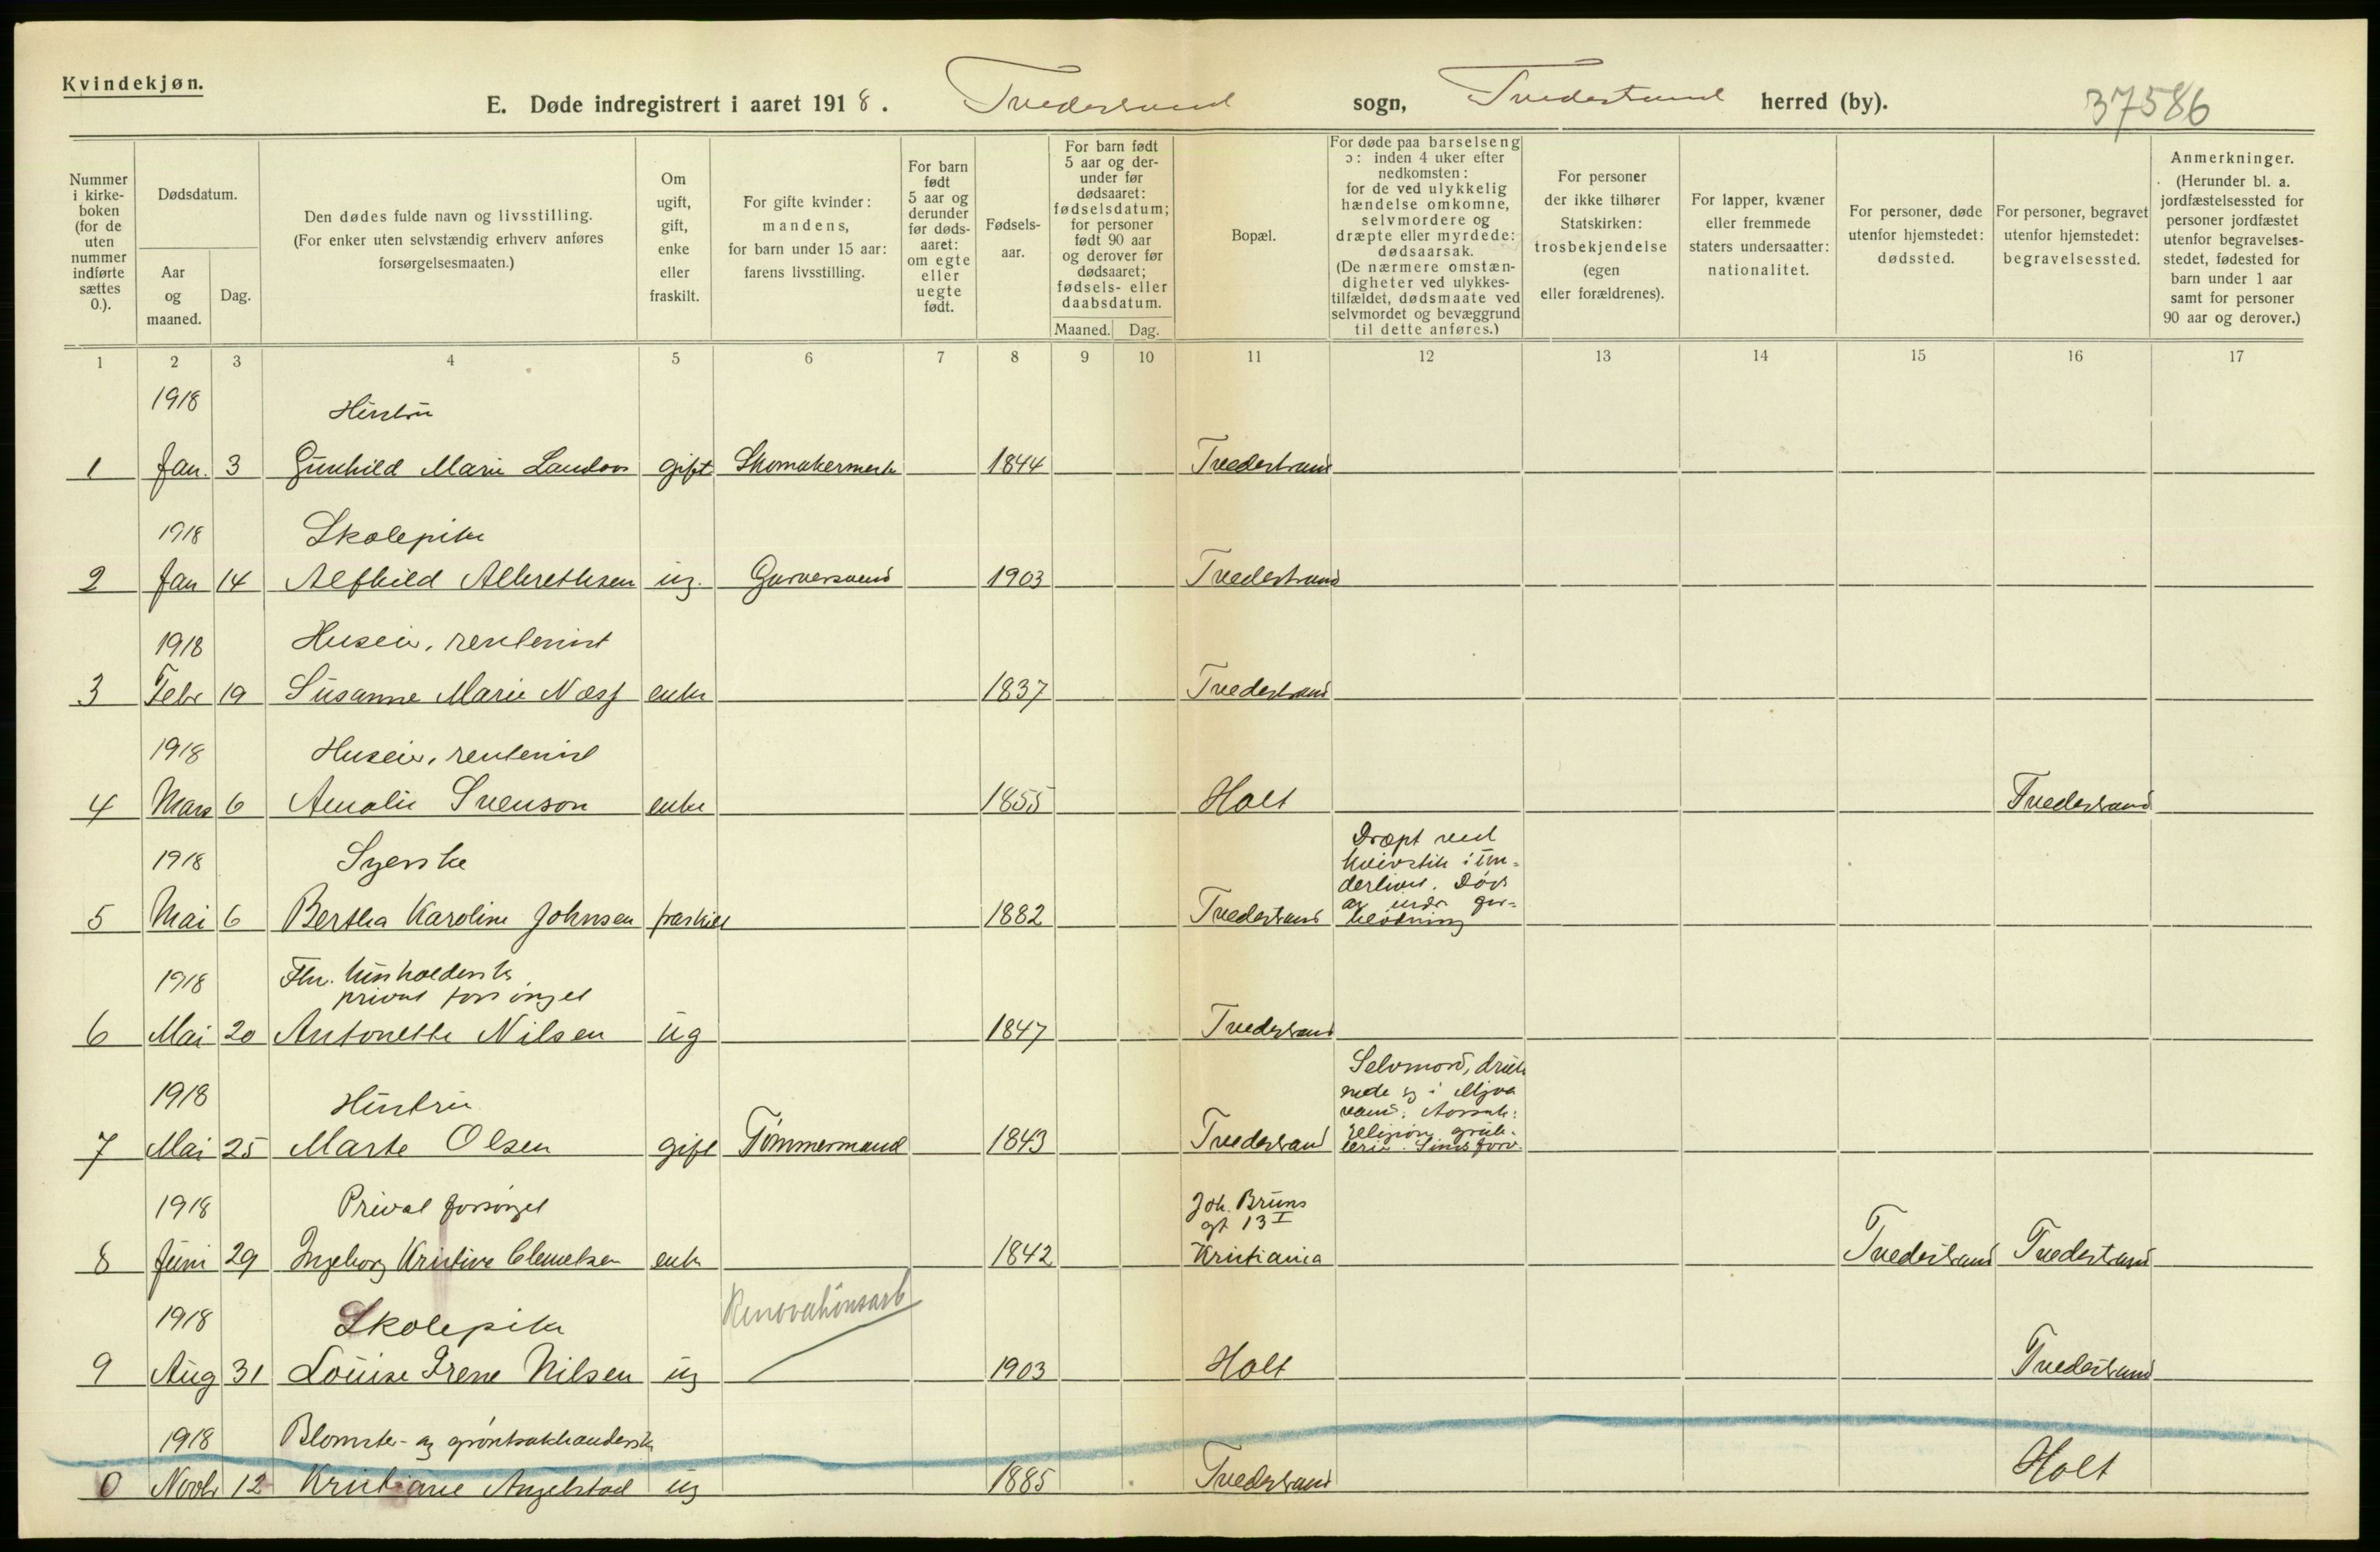 Kvindekjøn.
E. Døde indregistrert i aaret 1918. Tvedestrand sogn, Tvedestrand herred (by). 37586
Nummer i kirke-boken (for de uten nummer indførte sættes 0.).
Dødsdatum.
Aar og maaned.
Dag.
Den dødes fulde navn og livsstilling.
(For enker uten selvstændig erhverv anføres forsørgelsesmaaten.)
Om ugift, gift, enke eller fraskilt.
For gifte kvinder: mandens, for barn under 15 aar: farens livsstilling.
For barn født 5 aar og derunder før døds-aaret: om egte eller uegte født.
Fødsels-aar.
For barn født 5 aar og der-under før dødsaaret: fødselsdatum; for personer født 90 aar og derover før dødsaaret; fødsels- eller daabsdatum.
Maaned. Dag.
Bopæl.
For døde paa barselseng ɔ: inden 4 uker efter nedkomsten: for de ved ulykkelig hændelse omkomne, selvmordere og dræpte eller myrdede: dødsaarsak. (De nærmere omstæn-digheter ved ulykkes-tilfældet, dødsmaate ved selvmordet og bevæggrund til dette anføres.)
For personer der ikke tilhører Statskirken: trosbekjendelse (egen eller forældrenes).
For lapper, kvæner eller fremmede staters undersaatter: nationalitet.
For personer, døde utenfor hjemstedet: dødssted.
For personer, begravet utenfor hjemstedet: begravelsessted.
Anmerkninger. (Herunder bl. a. jordfæstelsessted for personer jordfæstet utenfor begravelses-stedet, fødested for barn under 1 aar samt for personer 90 aar og derover.)
1 2 3 4 5 6 7 8 9 10 11 12 13 14 15 16 17
1918 Hustru
1 Jan. 3 Gunhild Marie gift Skomakermest 1844 Tvedestrand
1918 Skolepike
2 Jan 14 Alfhild Albrethsen ug. Garversvend 1903 Tvedestrand
1918 Huseier, rentenist
3 Febr 19 Susanne Marie Næss enke 1837 Tvedestrand
1918 Huseier, rentenist
4 Mars 6 Amalie Svenson enke 1855 Holt Tvedestrand
1918 Syerske
5 Mai 6 Bertha Karoline Johnsen fraskilt 1882 Tvedestrand
Dræpt ved
knivstik i un-
derlivet. Død
av indr
blødning
1918 Fhv. husholderske
privat forsørget
6 Mai 20 Antonette Nilsen ug 1847 Tvedestrand
1918 Hustru
7 Mai 25 Marte Olsen gift Tømmermand 1843 Tvedestrand
Selvmord, druk-
nede sig i Mjva
vand. Aarsak:
religiøn grub-
leri. Sinds forv.
1918 Privat forsørget Joh. Bruns
gt 13 I
8 Juni 29 Ingeborg Kristine Clemetsen enke 1842 Kristiania Tvedestrand Tvedestrand
1918 Skolepike Renovationsarb
9 Aug 31 Louise Irene Nilsen ug 1903 Holt Tvedestrand
1918 Blomster- og grøntsakhandlerske
0 Novbr 12 Kristiane Angelstad ug 1885 Tvedestrand Holt